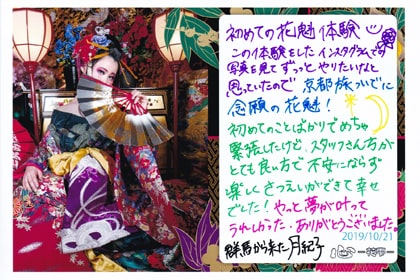 初めての花魁体験
この体験をした インスタグラムでの
写真を見て ずっっと やりたいなと
思っていたので 京都旅ついでに
念願の花魁!
初めてのことばかりでめちゃ
緊張したけど、スタッフさん方が
とても良い方で 不安にならず
楽しくさつえいができて幸せ
でした! やっと夢が叶って
うれしかった。ありがとうございました。
2019/10/21
群馬から来た 月紀子
心 一花